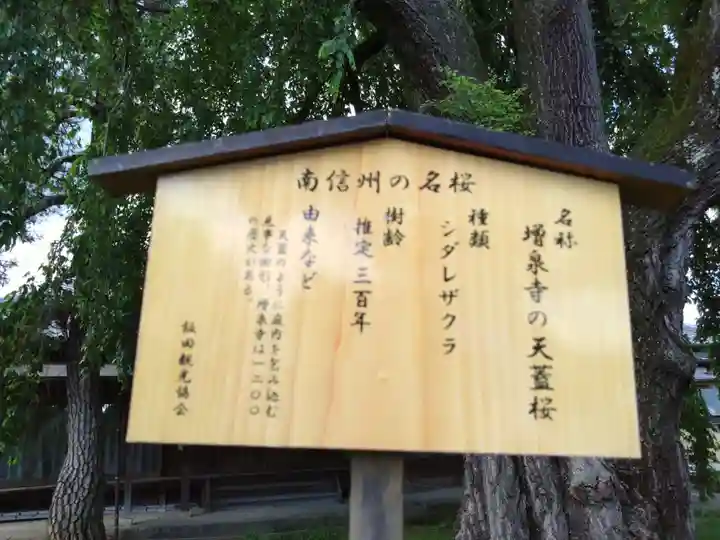 南信州の名桜
名称
増泉寺の天蓋桜
種類
シダレザクラ
樹齢
推定三百年
由来など
天蓋のように庭内を包み込む
見事な樹形。増泉寺は一二〇〇
の歴史がある。
飯田観光協会